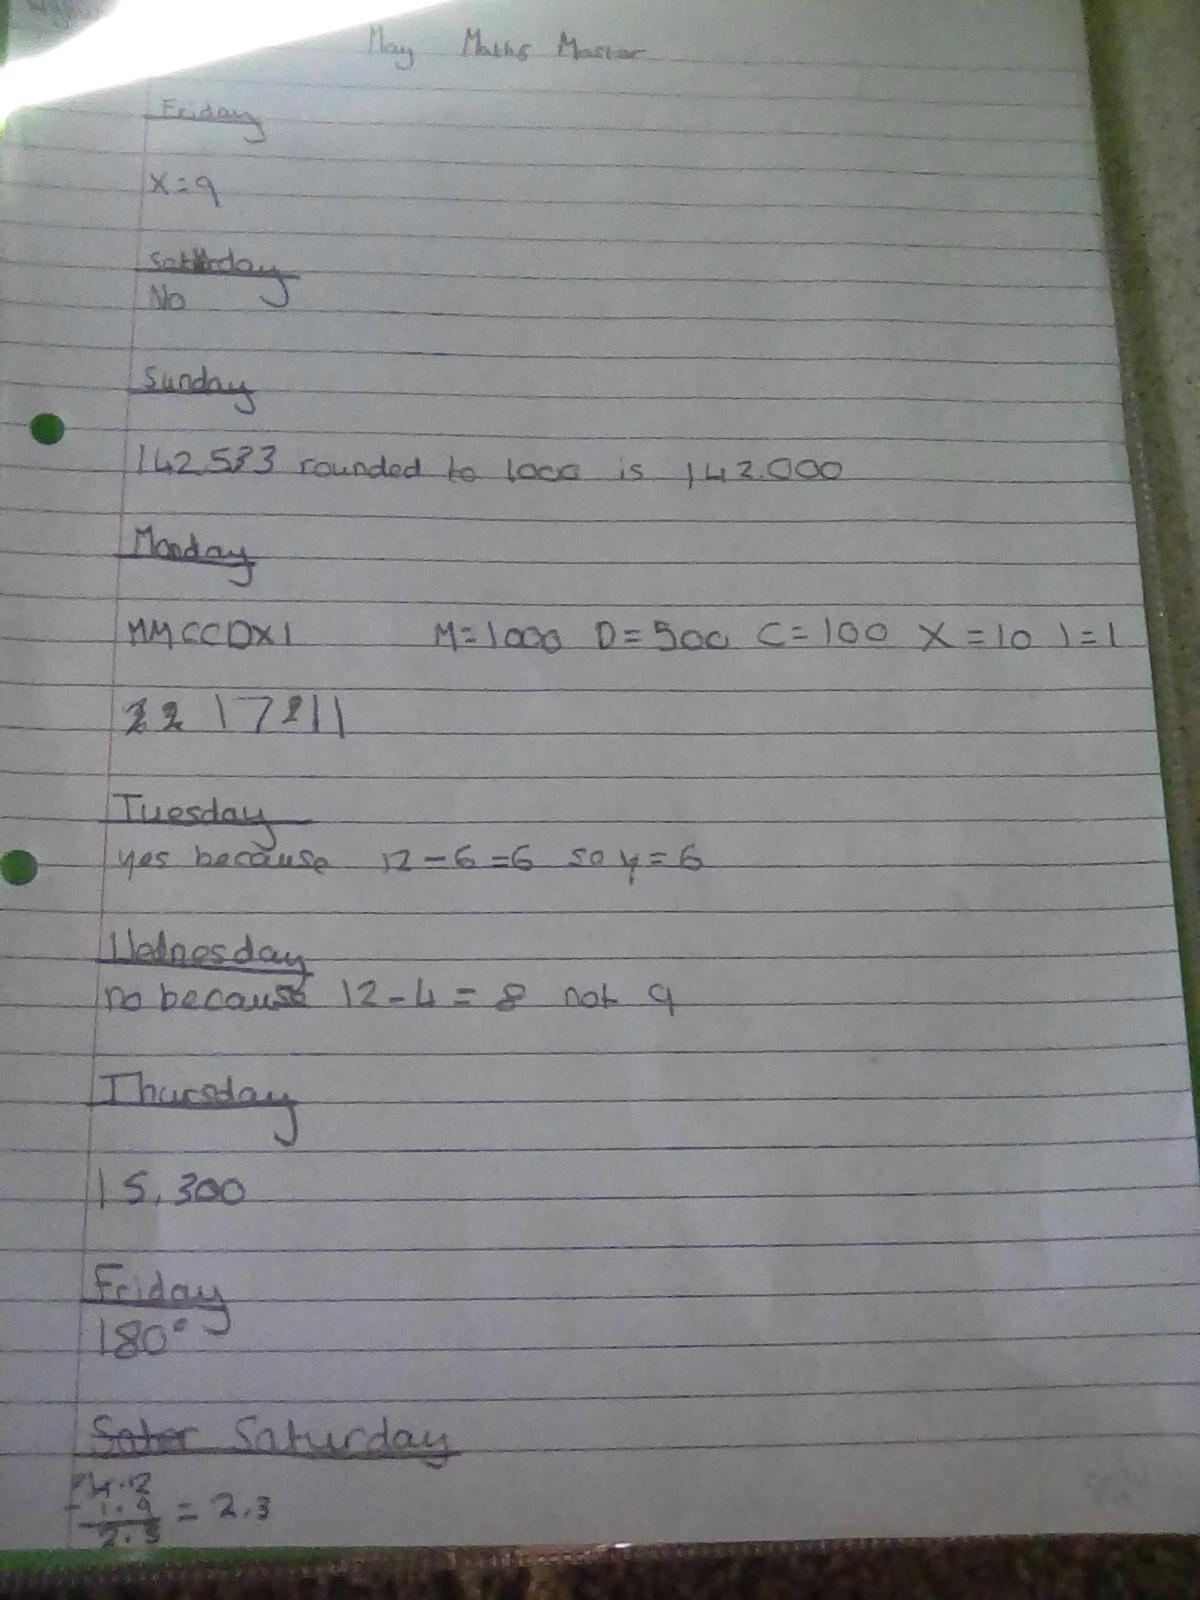 May Maths Master
Friday
x=9
Saturday
No
Sunday
142533 rounded to 1000 is 142.000
Monday
MMCCDXI M=1000 D=500 C=100 X=10 I=1
Tuesday
yes because 12-6=6 so y=6
Wednesday
no because 12-4=8 not 9
Thursday
15,300
Friday
180°
Sater Saturday
4.2
- 1.9 = 2.3
2.3